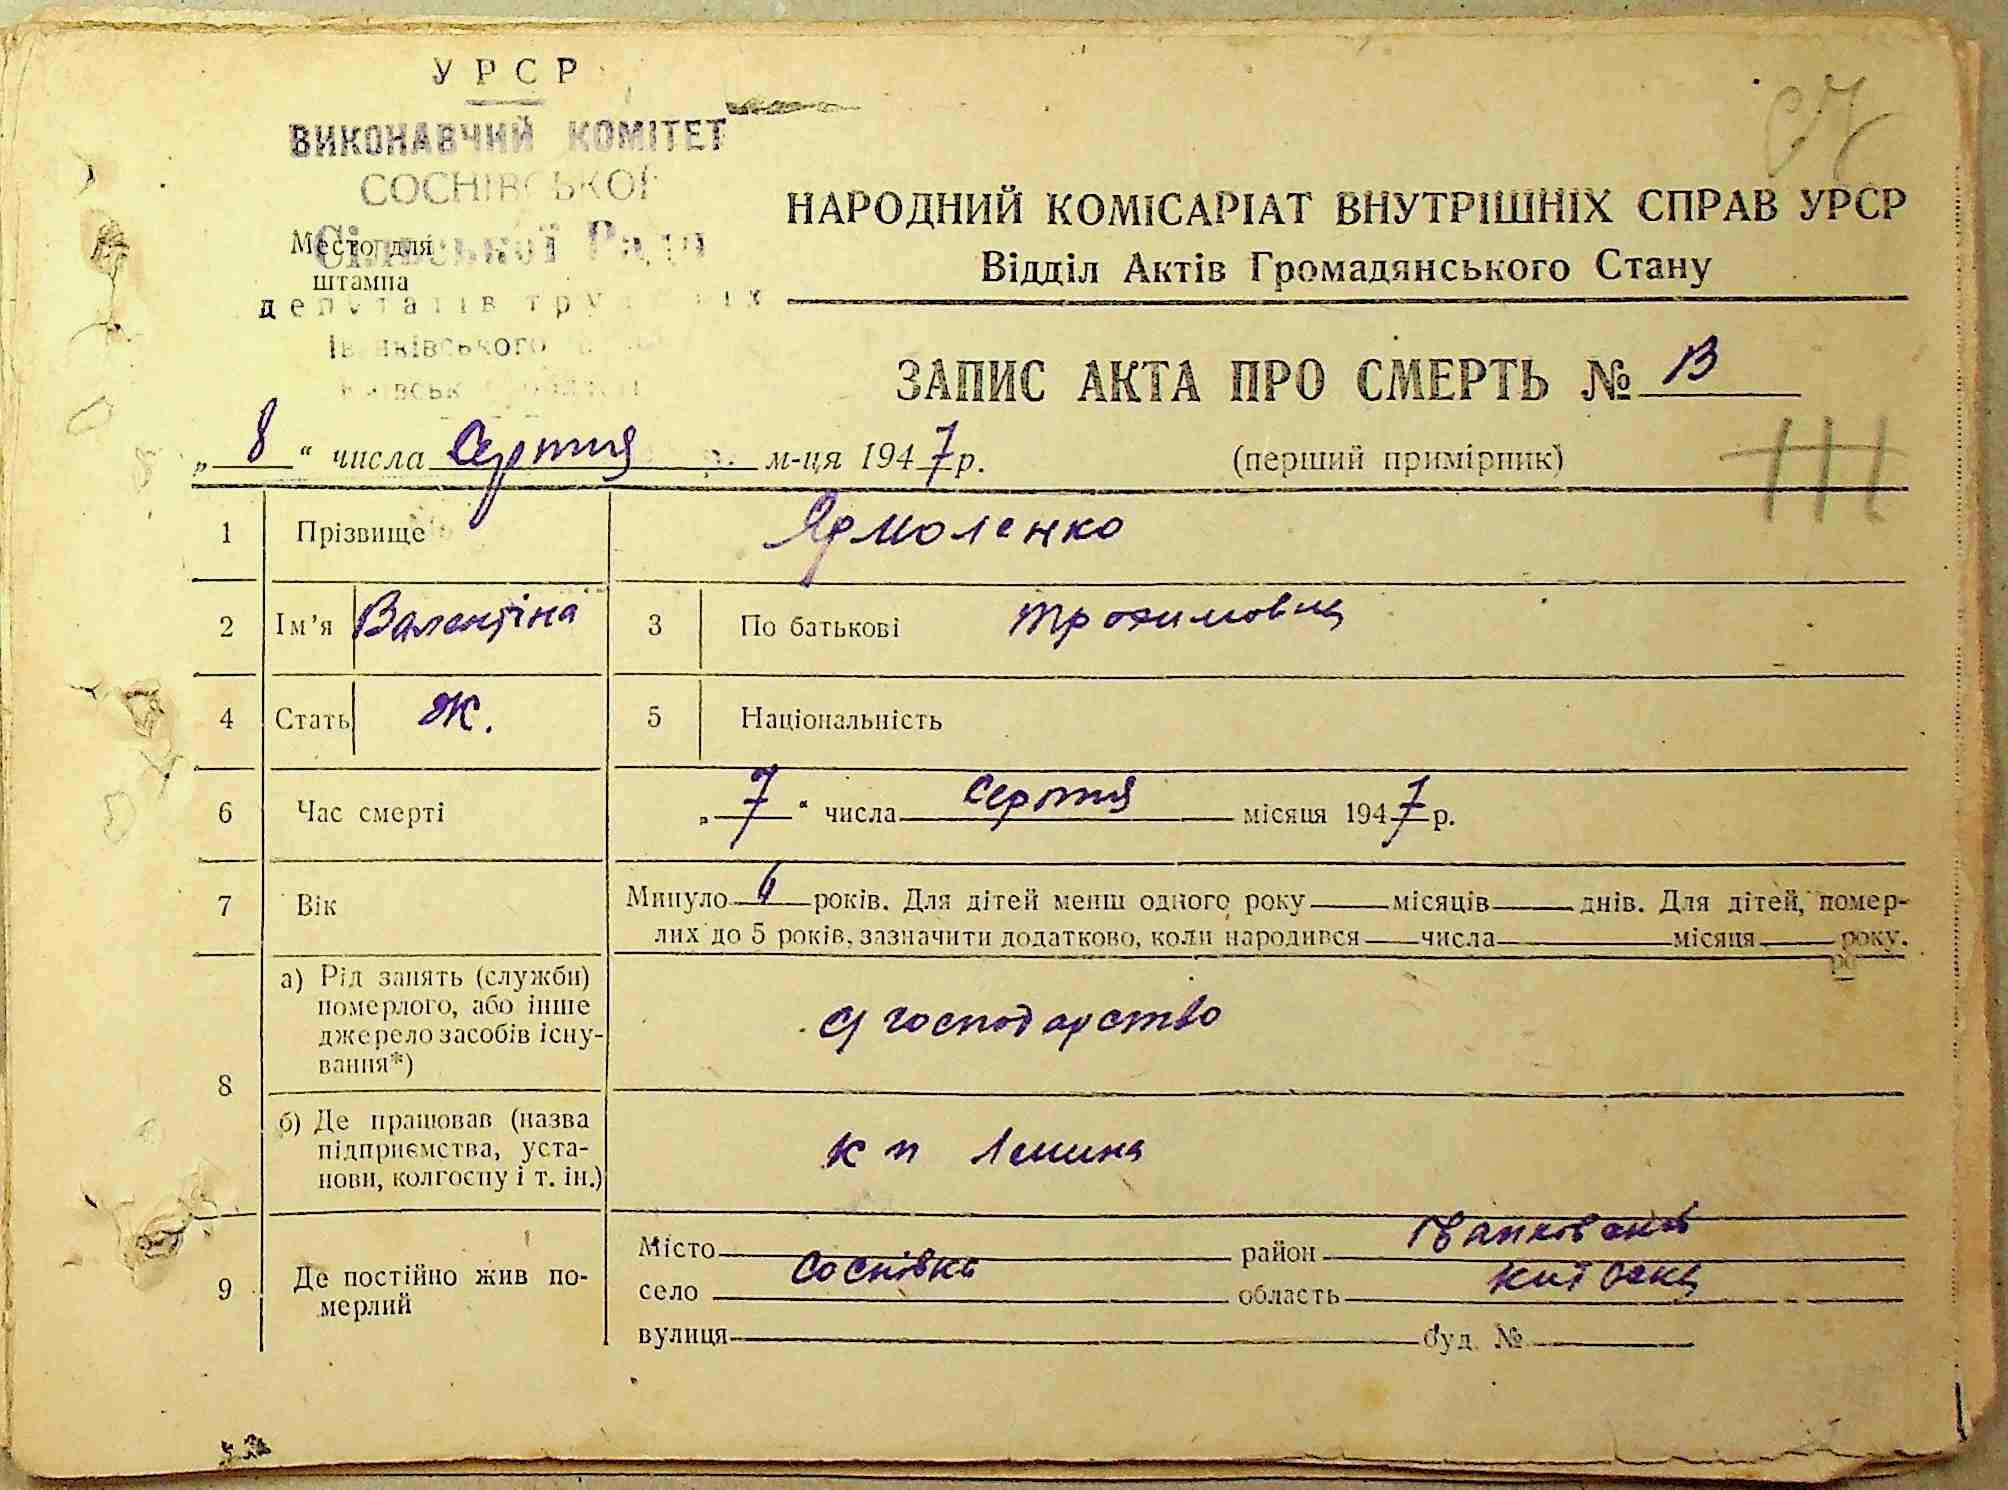 УРСР
ВИКОНАВЧИЙ КОМІТЕТ
СОСНІВСЬКОЇ
Сільської Ради
Место для
штампа
депутатів трудящих
Іванківського
НАРОДНИЙ КОМІСАРІАТ ВНУТРІШНІХ СПРАВ УРСР
Відділ Актів Громадянського Стану
ЗАПИС АКТА ПРО СМЕРТЬ № 13
„8“ числа Серпня м-ця 1947 р. (перший примірник)
1 Прізвище Ярмоленко
2 Ім’я Валентіна 3 По батькові Трохимовна
4 Стать Ж. 5 Національність
6 Час смерті „7“ числа Серпня місяця 1947 р.
7 Вік Минуло 6 років. Для дітей менш одного року місяців днів. Для дітей, помер-
лих до 5 років, зазначити додатково, коли народився числа місяця року.
8 а) Рід занять (служби) померлого, або інше джерело засобів існу-вання*) с/господарство
б) Де працював (назва підприємства, уста-нови, колгоспу і т. ін.) к п Леніна
9 Де постійно жив по-мерлий
Місто район Іванковский
село Соснівка область Київска
вулиця буд. №